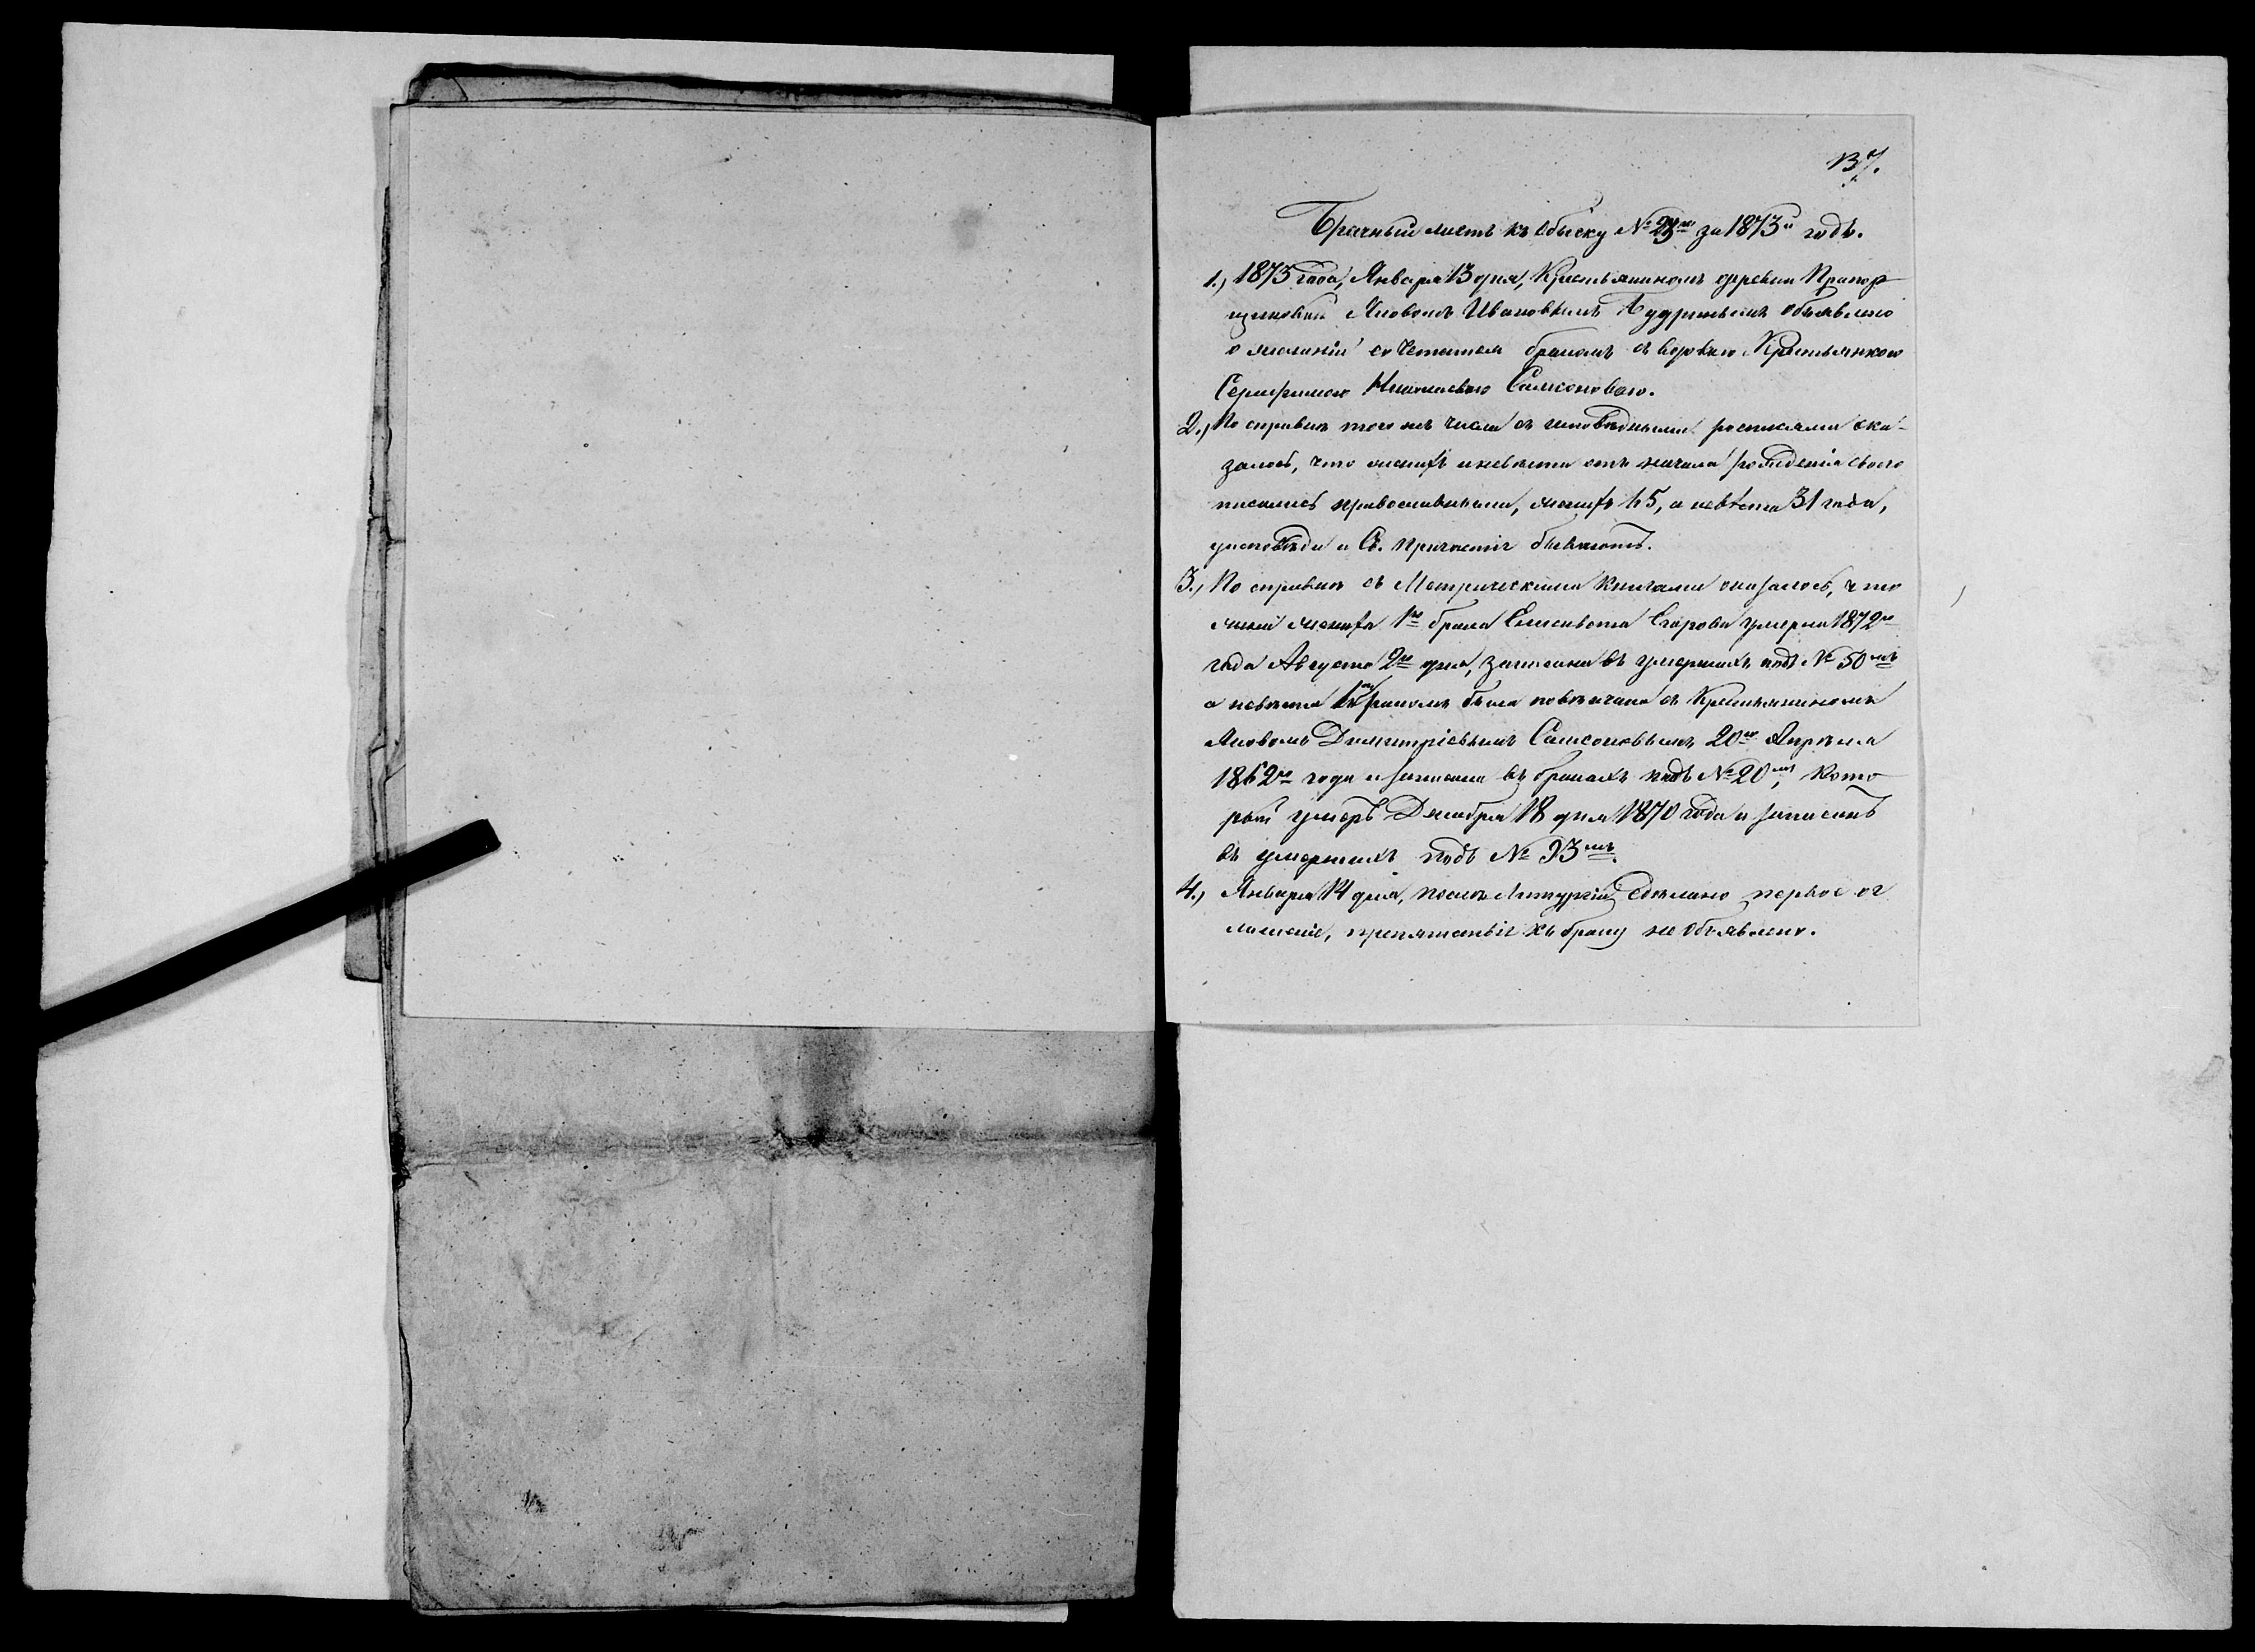 137.
Брачный листъ къ обыску № 23му за 1873й годъ.
1.) 1873 года, Января 13 дня, Крестьяниномъ деревни Прапор-
щиковой Яковомъ Ивановымъ Будринымъ объявлено
о желаніи сочетаться бракомъ съ вдовою Крестьянкою
Серафимою Николаевою Самсоновою.
2.) По справкѣ того же числа съ исповѣдными росписями ока-
залось, что женихъ и невѣста отъ начала рожденія своего
писались православными, женихъ 45, а невѣста 31 года,
у исповѣди и Св. Причастія бываютъ.
3.) По справкѣ съ Метрическими Книгами оказалось, что
жена жениха 1го брака Елисавета Егорова умерла 1872го
года Августа 2го дня, записана въ умершихъ подъ № 50мъ
а невѣста 1мъ бракомъ была повѣнчана съ Крестьяниномъ
Яковомъ Димитріевымъ Самсоновымъ 20го Апрѣля
1862го года и записана въ бракахъ подъ № 20мъ, Кото-
рый умеръ Декабря 18 дня 1870 года и записанъ
въ умершихъ подъ № 93мъ.
4.) Января 14 дня, послѣ Литургіи, сдѣлано первое ог-
лашеніе, препятствія къ браку не объявлено.